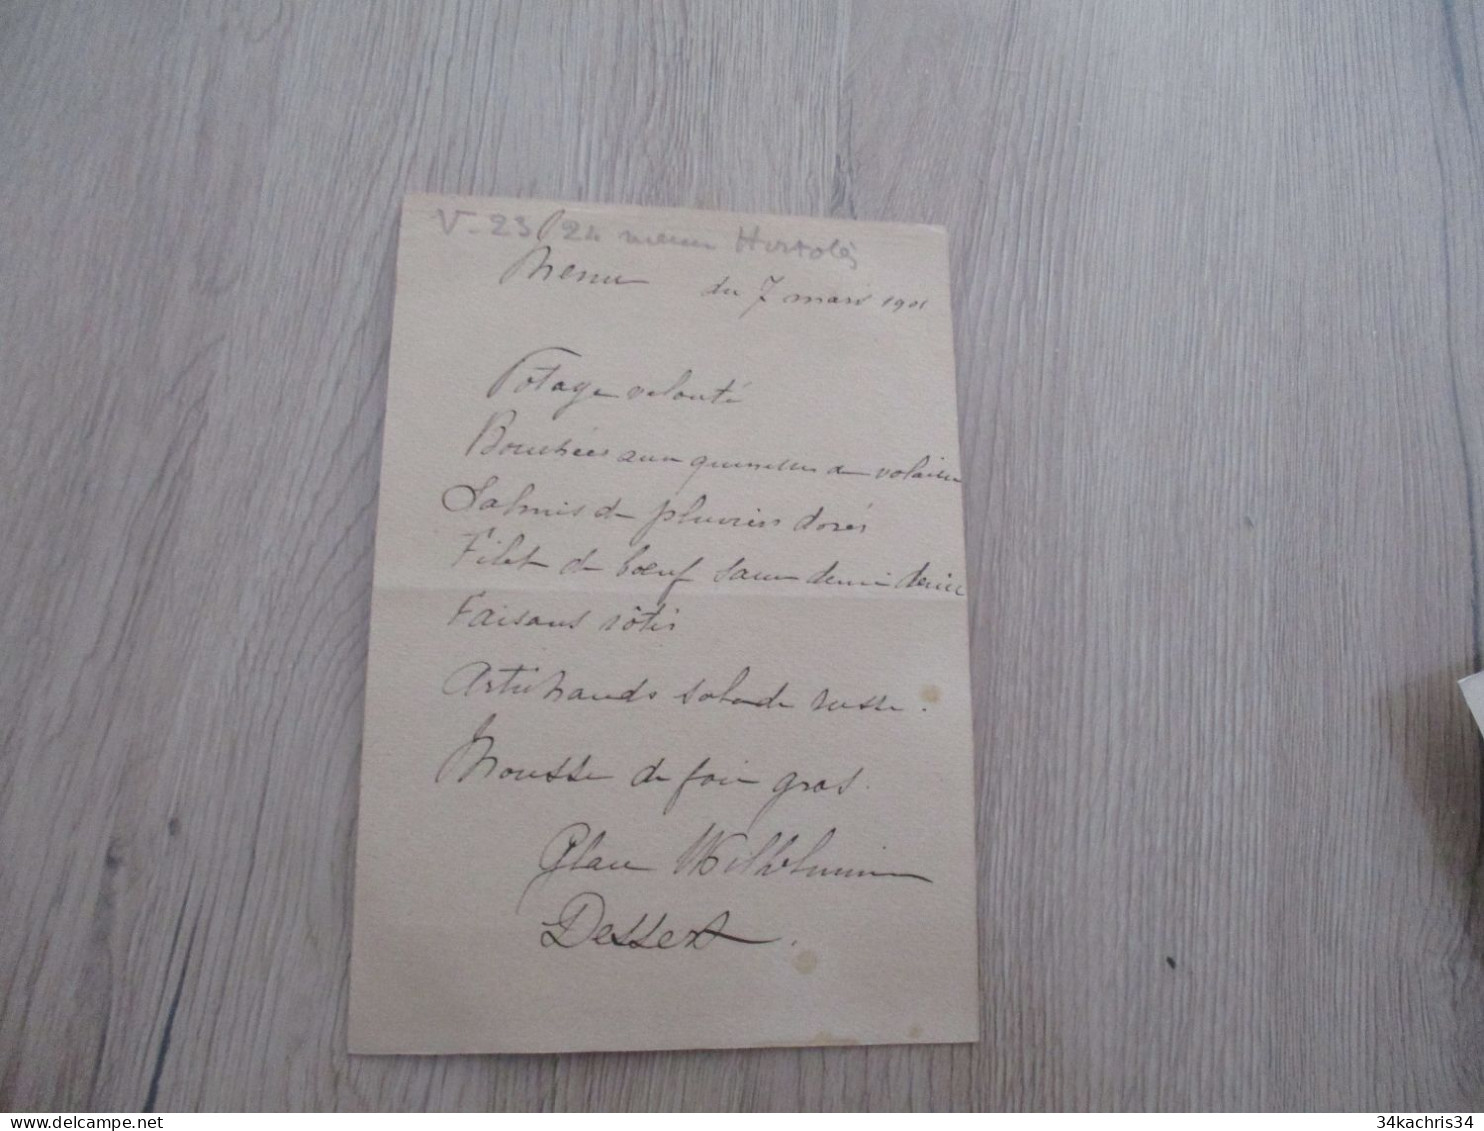 V-23 24 menu Hortolès
Menu du 7 mars 1901
Potage velouté
Bouchées aux quenelles de volaille
Salmis de pluviers dorés
Filet de bœuf sauce demi
Faisans rôtis
Artichauds salade russe.
Mousse de foie gras.
Glace Wilhelmine
Dessert.
34kachris34